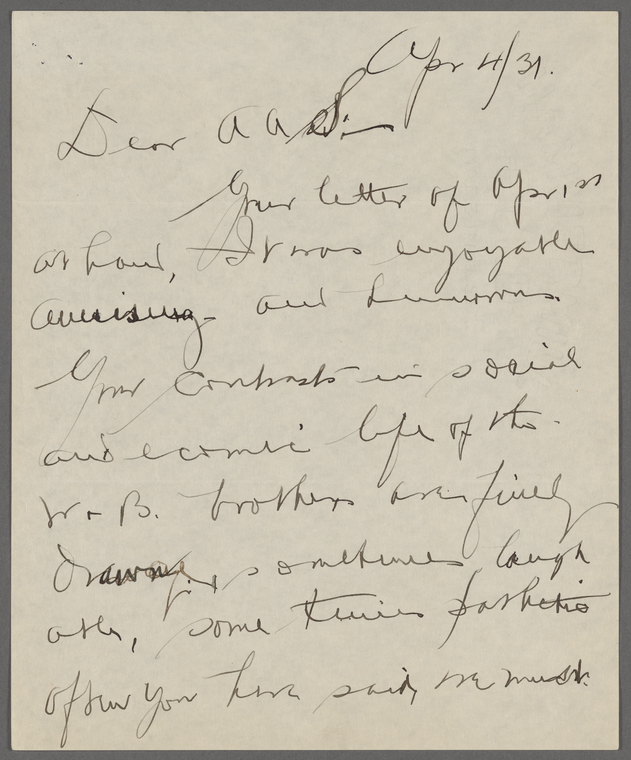 Apr 4/31.
Dear A A S:—
Your letter of Apr 1st
at hand, It was enjoyable
amusing and humorous.
Your contrasts in social
and ecomic life of the
W + B. brothers are finely
drawn, sometimes laugh
able, some times pathetic
often you have said, we must